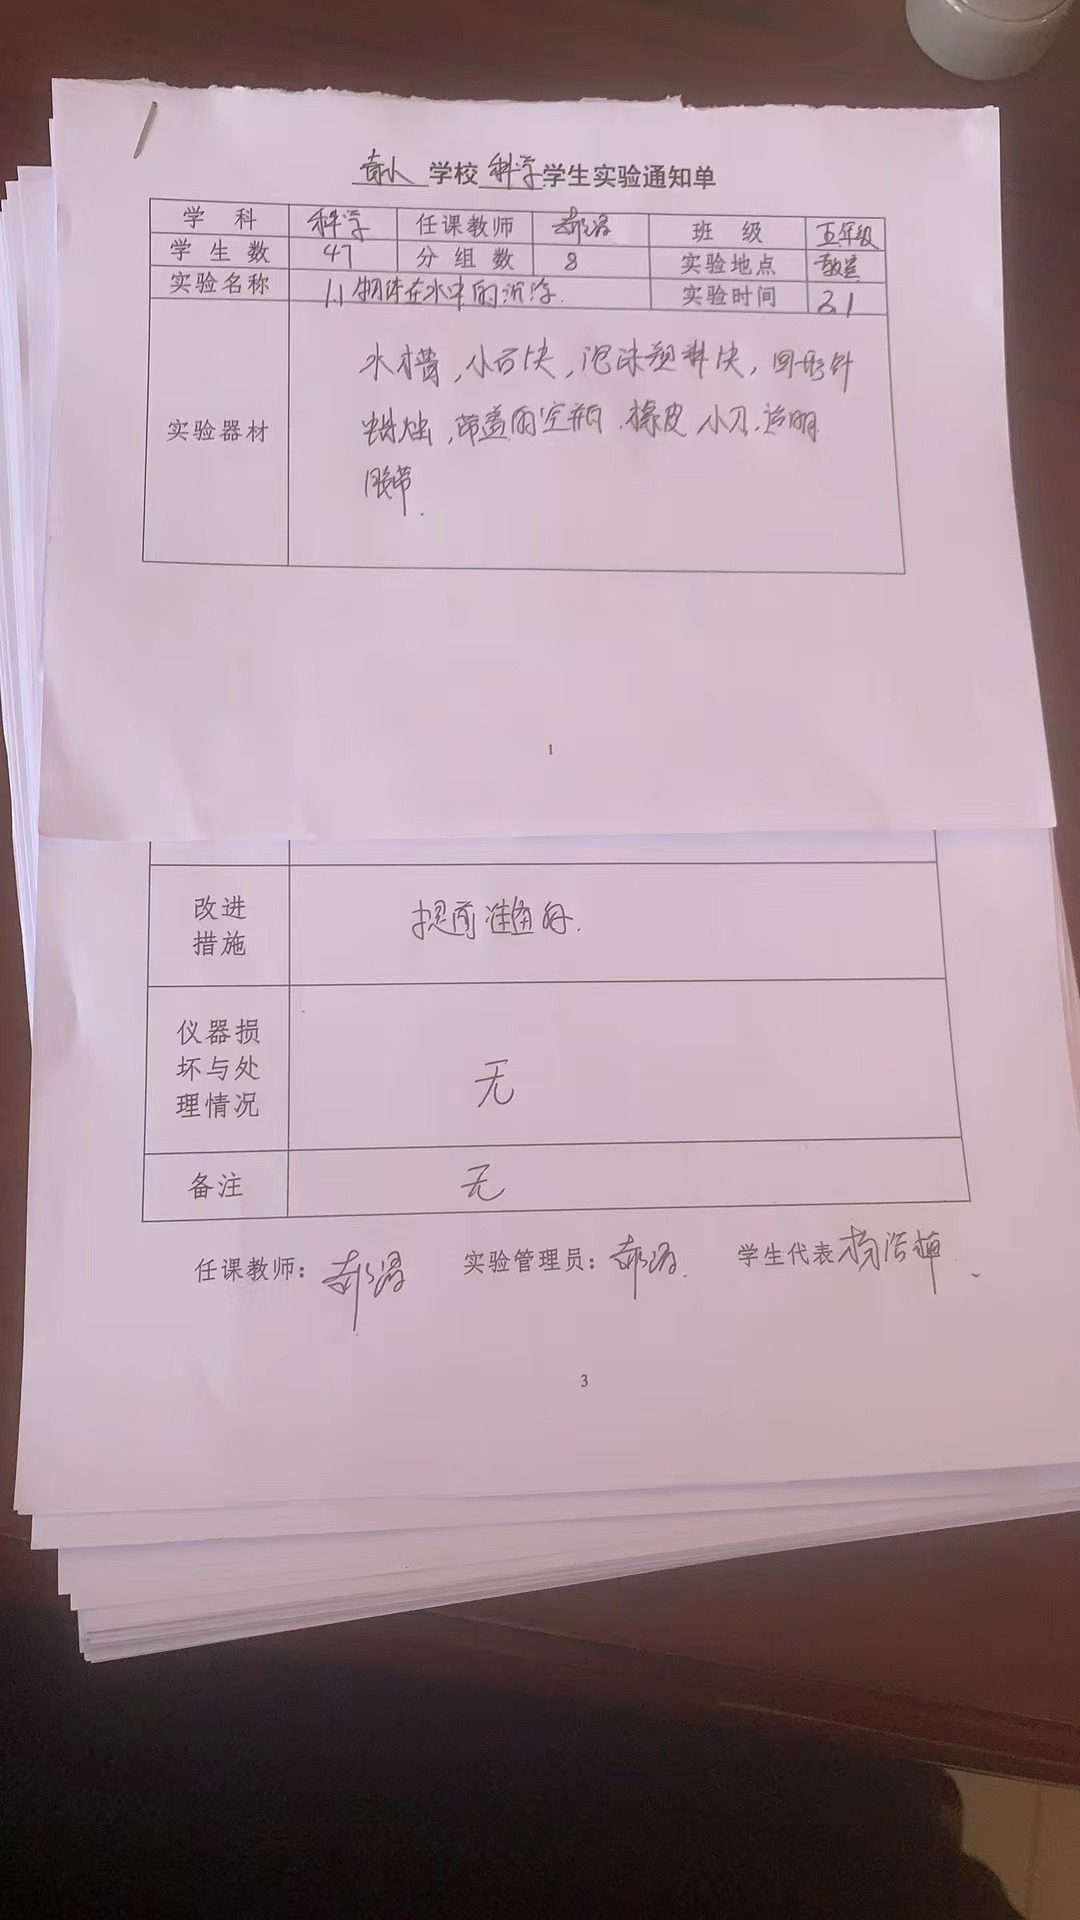 学校 科学 学生实验通知单
学科 科学 任课教师 班级 五年级
学生数 47 分组数 8 实验地点 教室
实验名称 1.1物体在水中的沉浮. 实验时间 3.1
水槽,小石块,泡沫塑料块,回形针
实验器材 蜡烛,带盖的空瓶.橡皮.小刀.透明
胶带.
1
改进
措施 提前准备好.
仪器损
坏与处
理情况 无
备注 无
任课教师: 实验管理员: 学生代表
3